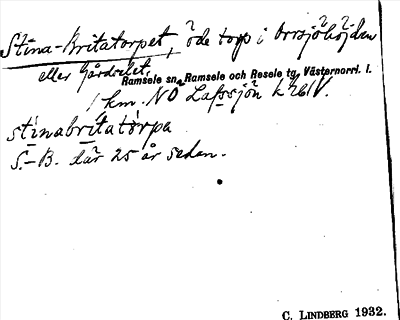 Stina-Britatorpet, öde torp i Orrsjöhöjden
eller Gårdselet.
Ramsele sn, Ramsele och Resele tg, Västernorrl. l.
1 km. NO Lafssjön k 261V.
stinabritatórpa
S.-B. där 25 år sedan.
C. LINDBERG 1932.